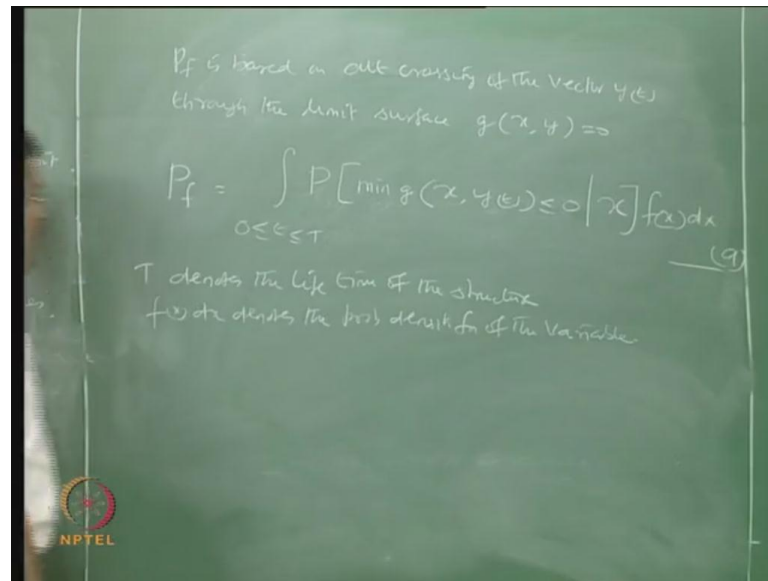 Pf is based on out crossing of the vector y(t)
through the limit surface g(x, y) = 0
Pf = ∫ P [min g(x, y(t)) ≤ 0 | x] f(x) dx
0 ≤ t ≤ T
(9)
T denotes the life time of the structure
f(x) dx denotes the prob density fn of the variable
NPTEL